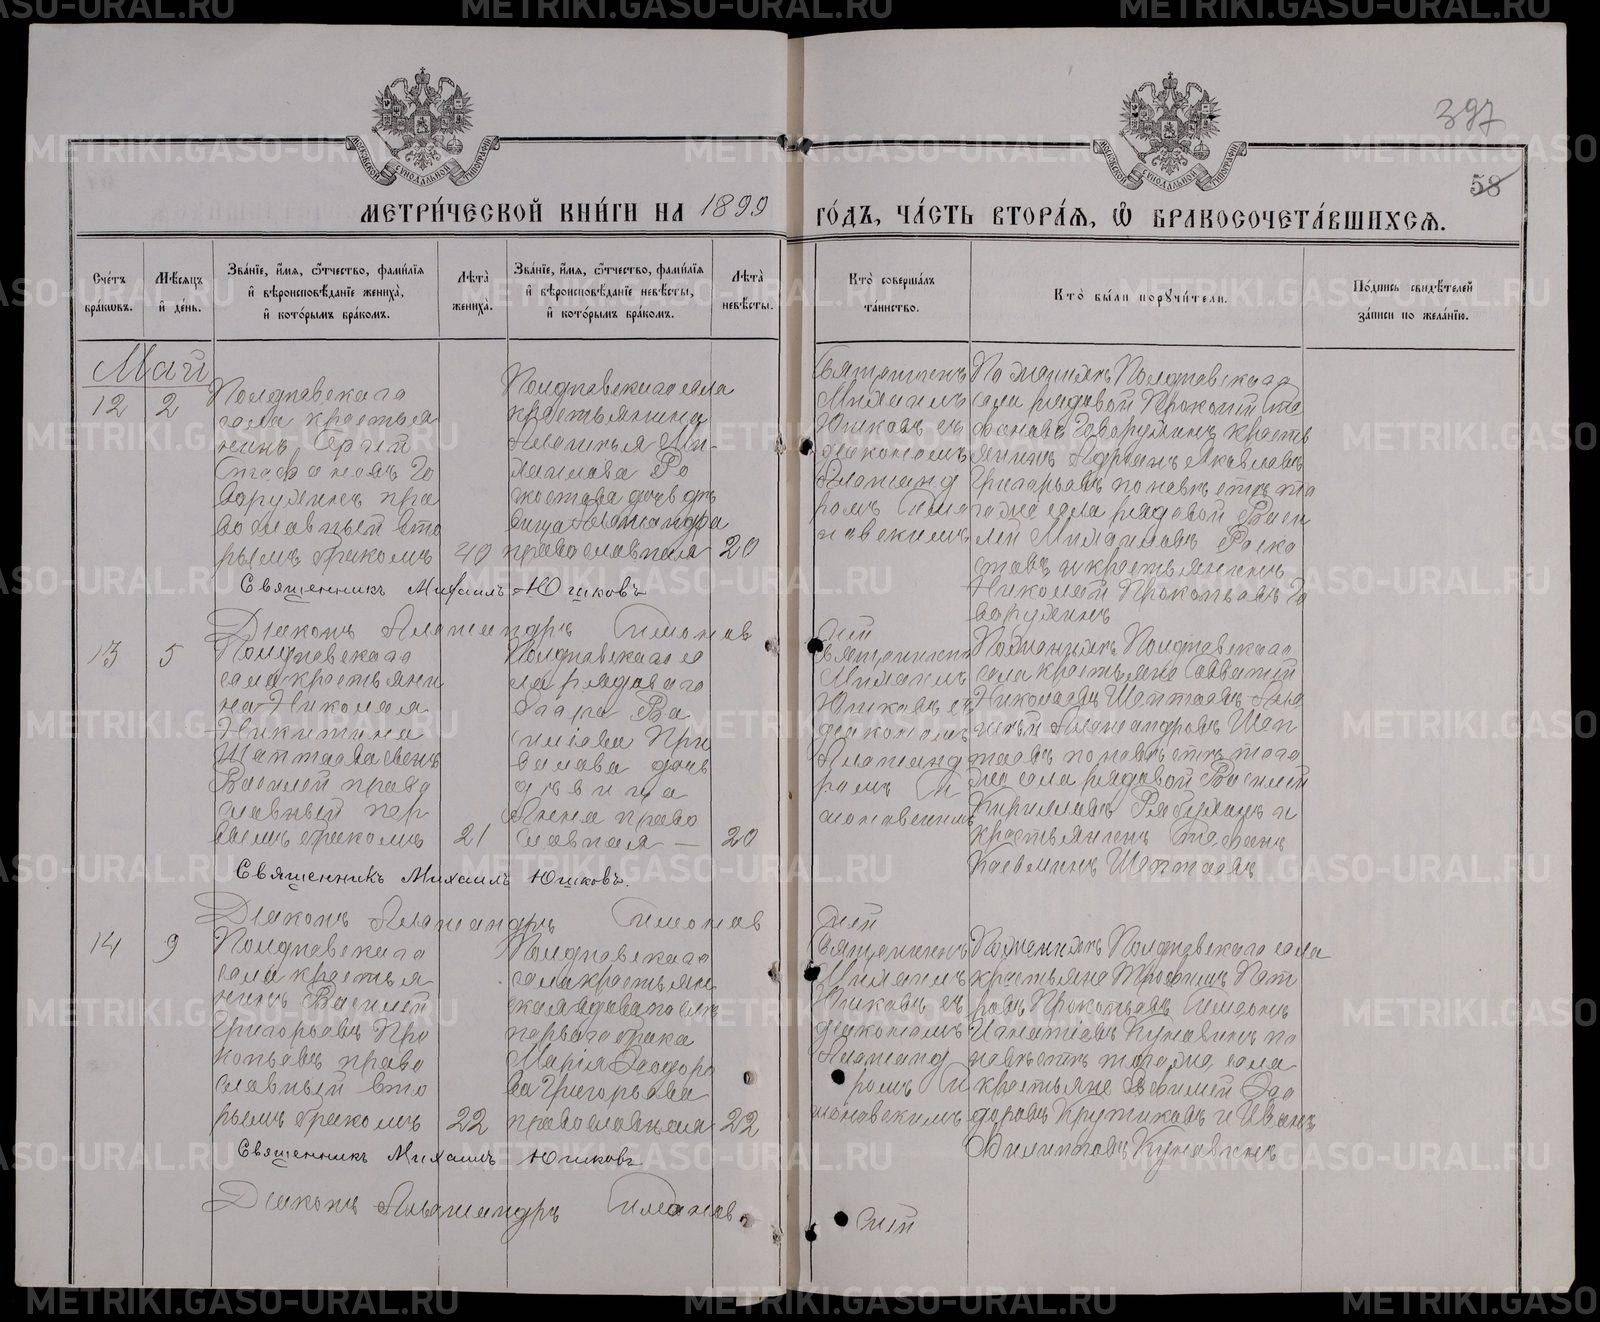 397
58
МЕТРИ́ЧЕСКОЙ КНИ́ГИ НА 1899 ГО́ДЪ, ЧА́СТЬ ВТОРА́Я, Ѽ БРАКОСОЧЕТА́ВШИХСЯ.
Сче́тъ бра́кѡвъ.
Мѣ́сяцъ и҆ де́нь.
Зва́нїе, и҆́мя, ѻ҆́тчество, фами́лїя и҆ вѣроисповѣ́данїе жениха̀, и҆ кото́рымъ бра́комъ.
Лѣта̀ жениха̀.
Зва́нїе, и҆́мя, ѻ҆́тчество, фами́лїя и҆ вѣроисповѣ́данїе невѣ́сты, и҆ кото́рымъ бра́комъ.
Лѣта̀ невѣ́сты.
Кто̀ соверша́лъ та́инство.
Кто̀ бы́ли порꙋчи́тели.
По́дпись свидѣ́телей за́писи по жела́нїю.
Май
12
2
Полдневскаго
села крестья
нинъ Сергій
Стефановъ Го
ворухинъ пра
вославный вто
рымъ бракомъ
40
Полдневскаго села
крестьянина
Ми-
хаилова Ро
дочь дѣ
вица Александра
православная
20
Священникъ
Михаилъ
Юшковъ съ
діакономъ
Александ
ромъ Симо
новскимъ
По женихѣ Полдневскаго
села рядовой Прокопій Сте
фановъ Говорухинъ кресть
янинъ Адріанъ Яковлевъ
Григорьевъ по невѣстѣ то
го же села рядовой Васи
лій Михаиловъ
и крестьянинъ
Николай Прокопьевъ Го
ворухинъ
Священникъ Михаилъ Юшковъ
Діаконъ Александръ Симоновскій
13
5
Полдневскаго
села крестьяни
на Николая
Никитина
Шептаева сынъ
Василій право
славный пер
вымъ бракомъ
21
Полдневскаго се
ла рядоваго
Ва
силіева При
валова дочь
дѣвица
Анна право
славная —
20
Священникъ
Михаилъ
Юшковъ съ
діакономъ
Александ
ромъ Си
моновскимъ
По женихѣ Полдневскаго
села крестьяне Савватій
Николаевъ Шептаевъ
Александровъ Шеп
таевъ по невѣстѣ того
же села рядовой Василій
Кирилловъ и
крестьянинъ Стефанъ
Косьминъ Шептаевъ
Священникъ Михаилъ Юшковъ.
Діаконъ Александръ Симоновскій
14
9
Полдневскаго
села крестья
нинъ Василій
Григорьевъ Про
копьевъ право
славный вто
рымъ бракомъ
22
Полдневскаго
села крестьян
ская вдова послѣ
перваго брака
Марія Ѳеодоро
ва Григорьева
православная
22
Священникъ
Михаилъ
Юшковъ съ
діакономъ
Александ
ромъ Си
моновскимъ
По женихѣ Полдневскаго села
крестьяне Трофимъ Пет
ровъ Прокопьевъ Симеонъ
Игнатіевъ Куновинъ по
невѣстѣ того же села
крестьяне Василій Ѳео
доровъ Крутиковъ и Иванъ
Филипповъ Куновинъ
Священникъ Михаилъ Юшковъ
Діаконъ Александръ Симоновскій
METRIKI.GASO-URAL.RU